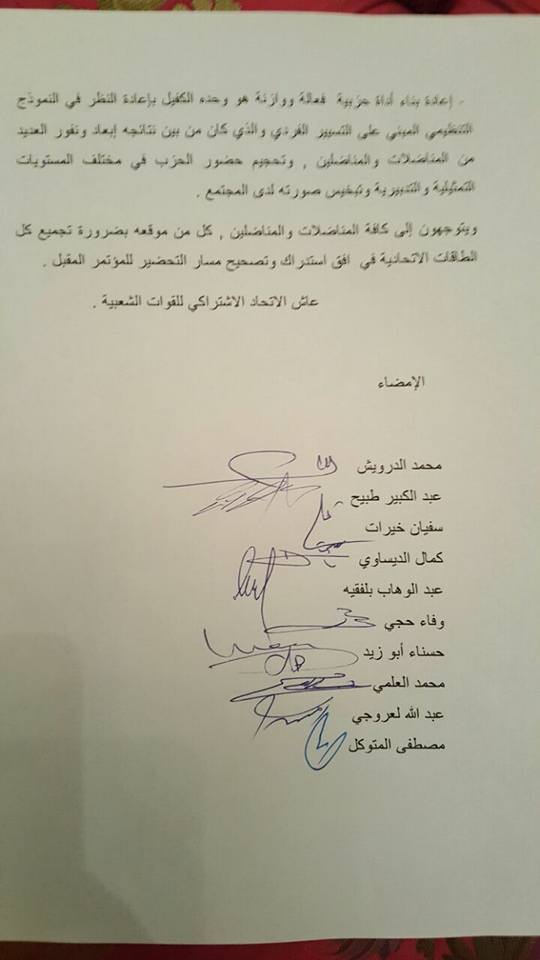 - إعادة بناء أداة حزبية فعالة ووازنة هو وحده الكفيل بإعادة النظر في النموذج
التنظيمي المبني على التسيير الفردي والذي كان من بين نتائجه إبعاد ونفور العديد
من المناضلات والمناضلين , وتحجيم حضور الحزب في مختلف المستويات
التمثيلية والتدبيرية وتبخيس صورته لدى المجتمع .
ويتوجهون إلى كافة المناضلات والمناضلين , كل من موقعه بضرورة تجميع كل
الطاقات الاتحادية في افق استدراك وتصحيح مسار التحضير للمؤتمر المقبل .
عاش الاتحاد الاشتراكي للقوات الشعبية .
الإمضاء
محمد الدرويش
عبد الكبير طبيح
سفيان خيرات
كمال الديساوي
عبد الوهاب بلفقيه
وفاء حجي
حسناء أبو زيد
محمد العلمي
عبد الله لعروجي
مصطفى المتوكل